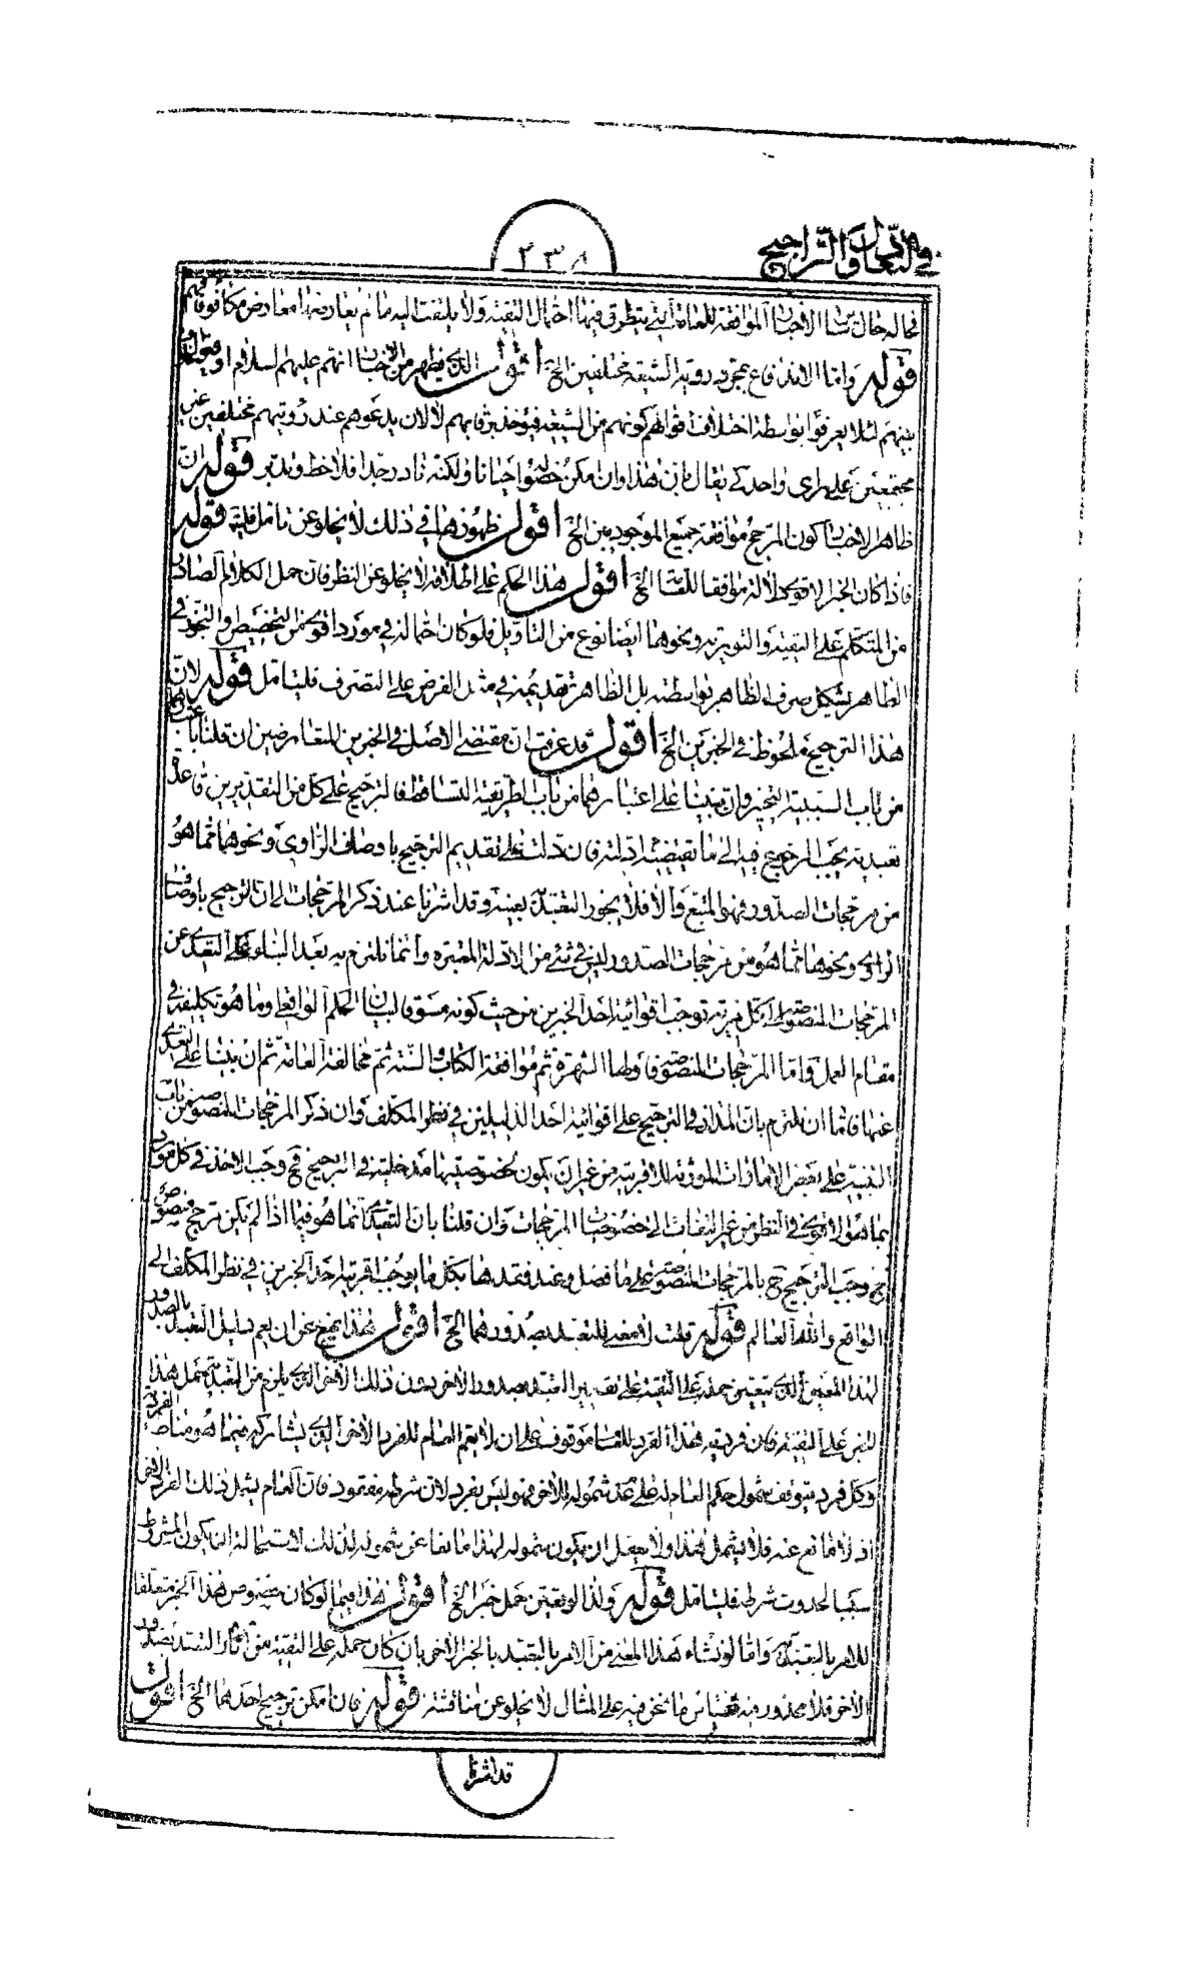 في التعادل والتراجيح
٢٣٨
فحاله حال سائر الأخبار الموافقة للعامة التي يتطرق فيها احتمال التقية ولا يلتفت إليه ما لم يعارضها معارض مكافئ فافهم
قوله وأما الاندفاع بمجرد رؤية الشيعة مختلفين الخ أقول الذي يظهر من الأخبار أنهم عليهم السلام أوقعوا الخلاف
بينهم لئلا يعرفوا بواسطة اختلاف أقوالهم كونهم من الشيعة فيؤخذ برقابهم لا لأن يدعوهم عند رؤيتهم مختلفين غير
مجتمعين على رأي واحد كي يقال بأن هذا وإن أمكن حصوله أحيانا ولكنه نادر جدا فلاحظ وتدبر قوله أن
ظاهر الأخبار كون المرجح موافقة جميع الموجودين الخ أقول ظهورها في ذلك لا يخلو عن تأمل قوله
فإذا كان الخبر الأقوى دلالة موافقا للعامة الخ أقول هذا الحكم على إطلاقه لا يخلو عن النظر فإن حمل الكلام الصادر
من المتكلم على التقية والتورية ونحوهما أيضا نوع من التأويل فلو كان احتماله في مورد أقوى من التخصيص والتجوز في
الظاهر يشكل صرف الظاهر بواسطته بل الظاهر تقديمه في مثل الفرض على التصرف فليتأمل قوله لأن
هذا الترجيح ملحوظ في الخبرين الخ أقول قد عرفت أن مقتضى الأصل في الخبرين المتعارضين إن قلنا باعتبارهما
من باب السببية التخيير وإن بنينا على اعتبارهما من باب الطريقية التساقط فالترجيح على كل من التقديرين قاعدة
تعبدية يجب الرجوع فيها إلى ما يقتضيه أدلته فإن دلت على تقديم الترجيح بأوصاف الراوي ونحوها مما هو
من مرجحات الصدور فهو المتبع وإلا فلا يجوز التعبد بعينه وقد أشرنا عند ذكر المرجحات إلى أن الترجيح بأوصاف
الراوي ونحوها مما هو من مرجحات الصدور ليس في شيء من الأدلة المعتبرة وإنما نلتزم به بعد البناء على التعدي عن
المرجحات المنصوصة إلى كل مزية توجب أقوائية أحد الخبرين من حيث كونه مسوقا لبيان الحكم الواقعي وما هو تكليفه في
مقام العمل وأما المرجحات المنصوصة فأولها الشهرة ثم موافقة الكتاب والسنة ثم مخالفة العامة ثم إن بنينا على التعدي
عنها فإما أن نلتزم بأن المدار في الترجيح على أقوائية أحد الدليلين في نظر المكلف وأن ذكر المرجحات المنصوصة من باب
التنبيه على بعض الأمارات الموثرة للأقربية من غير أن يكون لخصوصيتها مدخلية في الترجيح فح وجب الأخذ في كل مورد
بما هو الأقوى في النظر من غير التفات إلى خصوصيات المرجحات وإن قلنا بأن التعدي إنما هو فيما إذا لم يكن ترجيح منصوص
فح وجب الترجيح بالمرجحات المنصوصة على ما فصل وعند فقدها بكل ما يوجب أقربية أحد الخبرين في نظر المكلف إلى
الواقع والله العالم قوله قلت لا معنى للتعبد بصدورهما الخ أقول هذا يمنع عن أن يعم دليل التعبد بالصدور
لهذا الخبر الذي يتعين حمله على التقية على تقدير التعبد بصدور الآخر بدون ذلك الآخر الذي يلزم من التعبد به حمل هذا
الخبر على التقية فإن فردية هذا الفرد للعام موقوف على أن لا يعم العام للفرد الآخر الذي يشاركه فيما هو مناط الفردية
وكل فرد يتوقف شمول حكم العام له على عدم شموله للآخر فهو ليس بفرد لأن شرطه مفقود فإن العام يشمل ذلك الفرد الآخر
إذ لا مانع عنه فلا يشمل هذا ولا يعقل أن يكون شموله لهذا مانعا عن شموله لذلك لاستحالة أن يكون المشروط
سببا لحدوث شرطه فليتأمل قوله ولذا لو تعين حمل خبر الخ أقول هذا فيما لو كان خصوص هذا الخبر متعلقا
للأمر بالتعبد به وأما لو نشأ هذا المعنى من الأمر بالتعبد بالخبر الآخر بأن كان حمله على التقية من آثار التعبد بصدور
الآخر فلا محذور فيه فقياس ما نحن فيه على المثال لا يخلو عن مناقشة قوله فإن أمكن ترجيح أحدهما الخ أقول
قد أشرنا